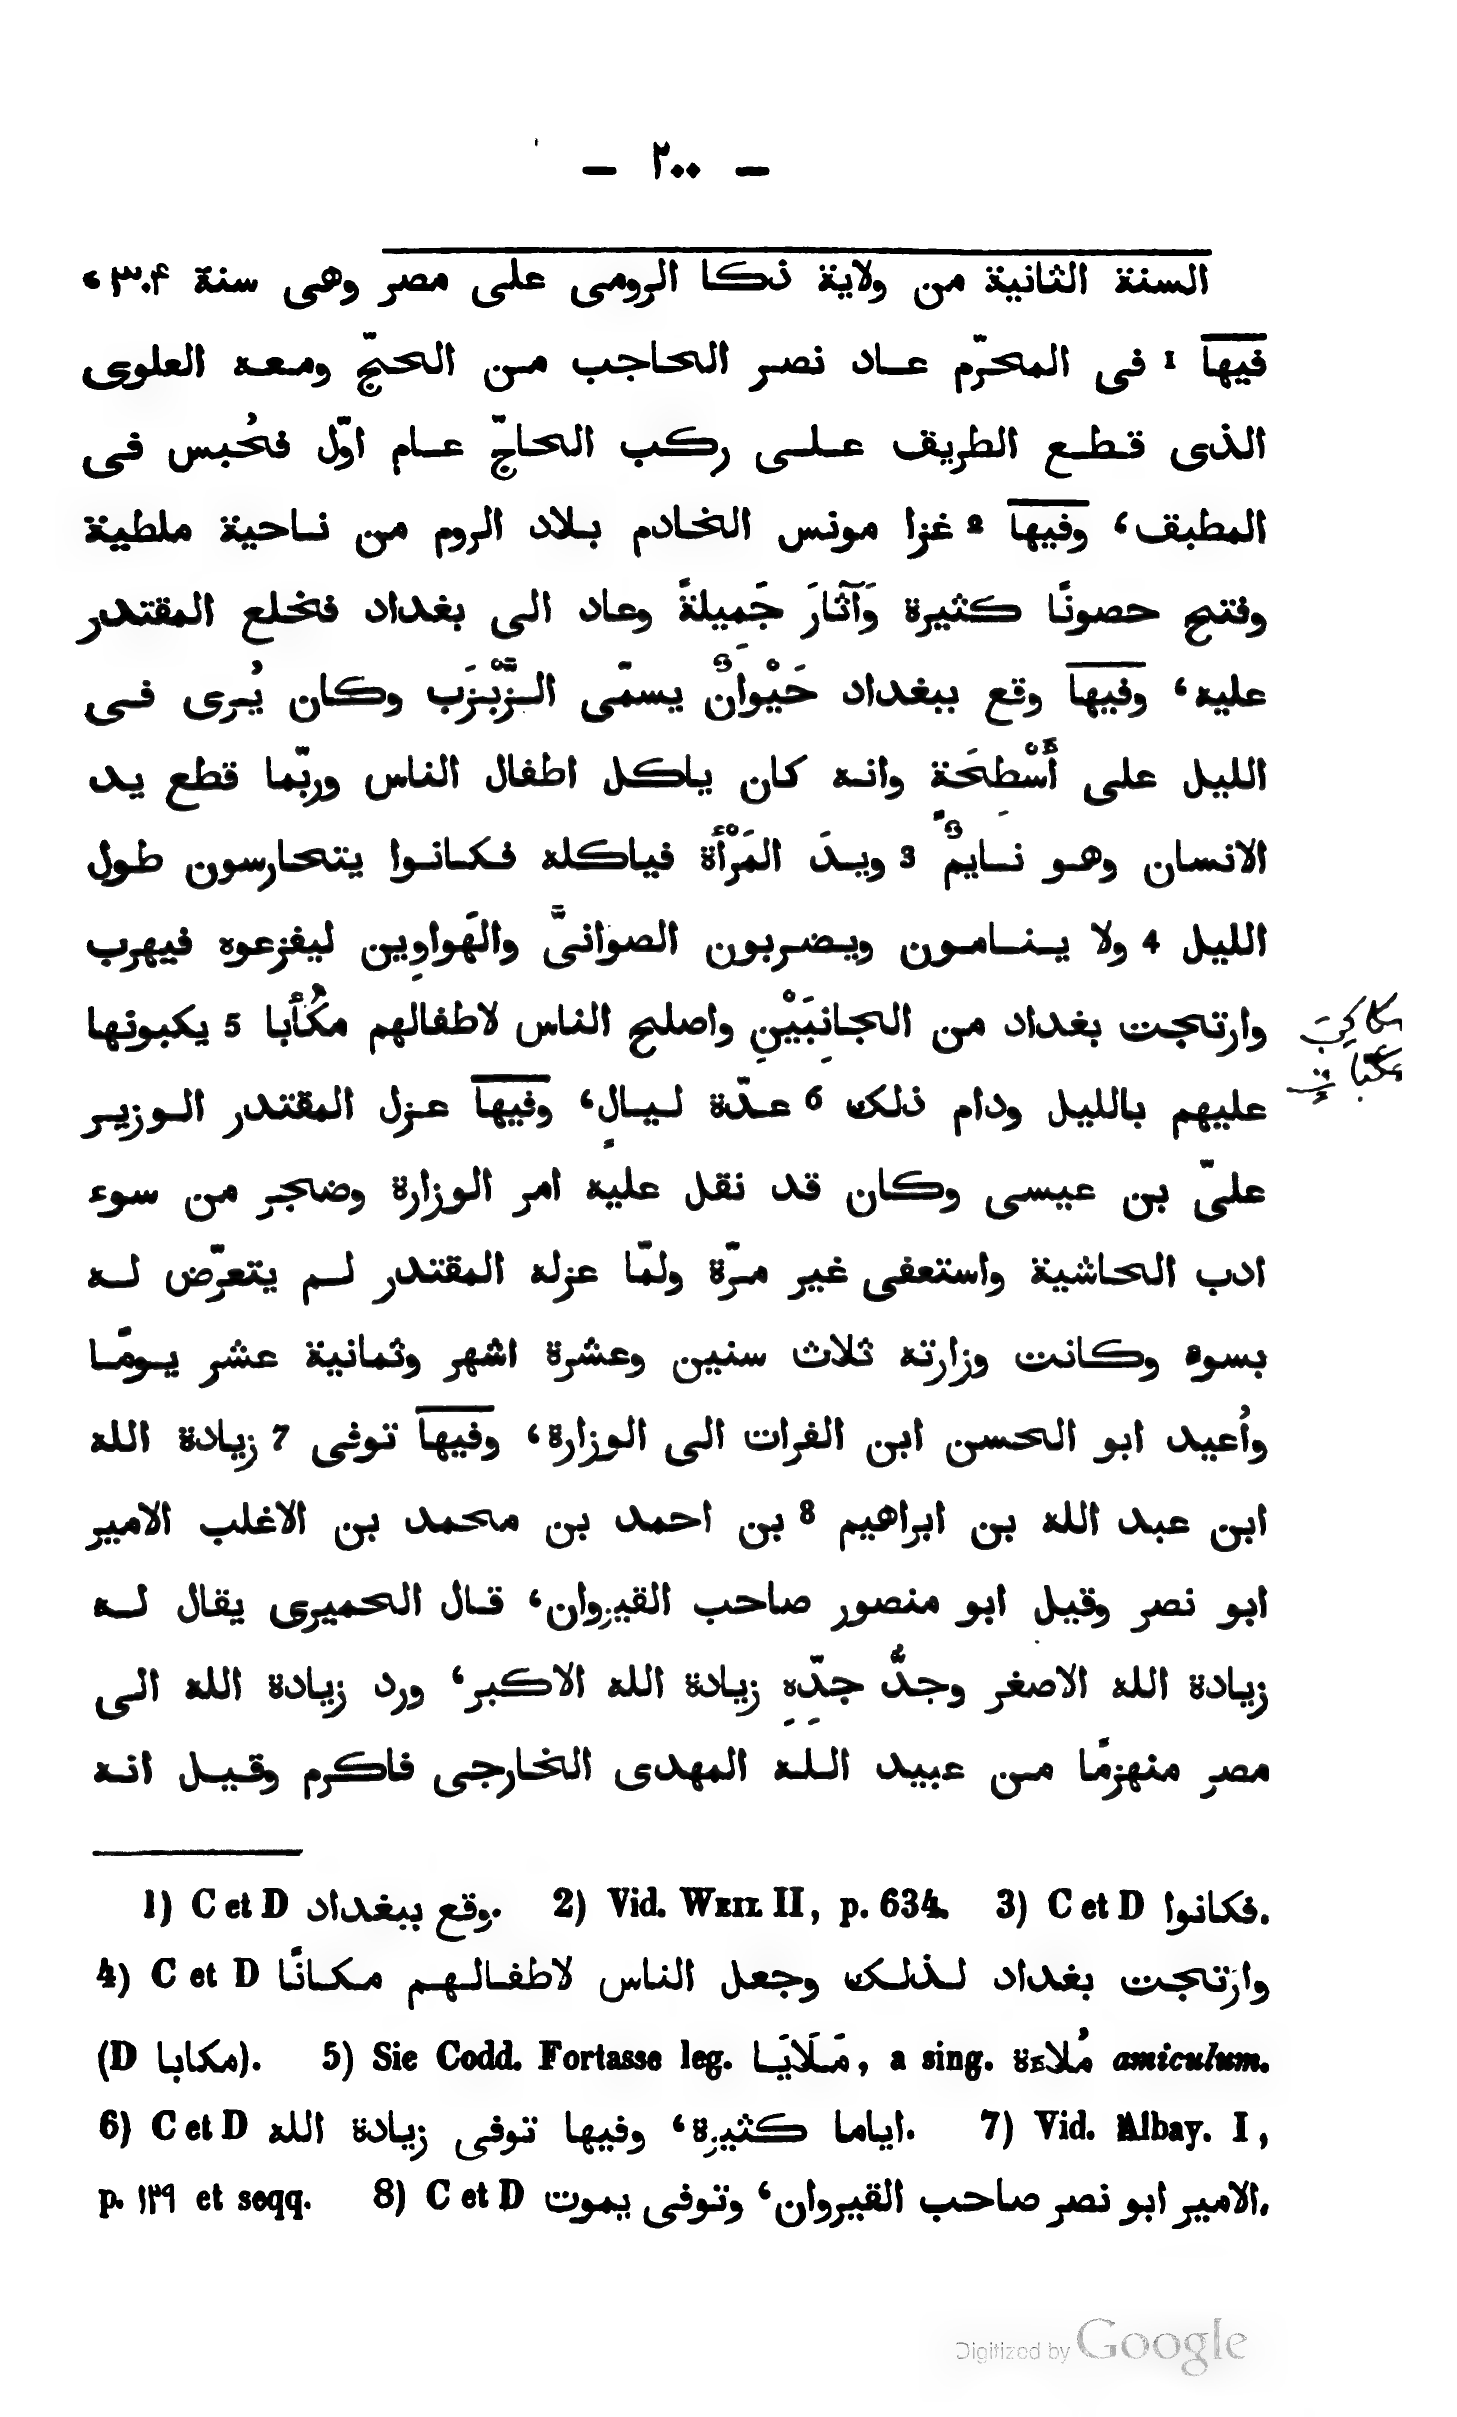 — ٢٠٠ —
السنة الثانية من ولاية ذكا الرومى على مصر وهى سنة ٣٠۴،
فيها 1 فى المحرّم عاد نصر الحاجب من الحجّ ومعه العلوى
الذى قطع الطريف على ركب الحاجّ عام اوّل فحُبس فى
المطبق، وفيها 2 غزا مونس الخادم بلاد الروم من ناحية ملطية
وفتح حصونًا كثيرة وَآثارَ جَمِيلةً وعاد الى بغداد فخلع المقتدر
عليه، وفيها وقع ببغداد حَيْوانٌ يسمّى الزَّبْزَب وكان يُرى فى
الليل على أَسْطِحَةٍ وانه كان ياكل اطفال الناس وربّما قطع يد
الانسان وهو نايمٌ 3 ويدَ المَرْأَة فياكله فكانوا يتحارسون طول
الليل 4 ولا ينامون ويضربون الصوانىَّ والهَواوِين ليفزعوه فيهرب
وارتجت بغداد من الجانِبَيْنِ واصلح الناس لاطفالهم مكُأَبا 5 يكبونها
عليهم بالليل ودام ذلك 6 عدّة ليالٍ، وفيها عزل المقتدر الوزير
علىّ بن عيسى وكان قد نقل عليه امر الوزارة وضجر من سوء
ادب الحاشية واستعفى غير مرّة ولمّا عزله المقتدر لم يتعرّض له
بسوء وكانت وزارته ثلاث سنين وعشرة اشهر وثمانية عشر يومًا
وأُعيد ابو الحسن ابن الفرات الى الوزارة، وفيها توفى 7 زيادة الله
ابن عبد الله بن ابراهيم 8 بن احمد بن محمد بن الاغلب الامير
ابو نصر وقيل ابو منصور صاحب القيروان، قال الحميرى يقال له
زيادة الله الاصغر وجدُّ جدّهِ زيادة الله الاكبر، ورد زيادة الله الى
مصر منهزمًا من عبيد الله المهدى الخارجى فاكرم وقيل انه
1) C et D وقع ببغداد. 2) Vid. WEIL II, p. 634. 3) C et D فكانوا.
4) C et D وارتجت بغداد لذلك وجعل الناس لاطفالهم مكانًا
(D مكابا). 5) Sic Codd. Fortasse leg. مَلَايَا, a sing. مُلاءَة amiculum.
6) C et D اياما كثيرة، وفيها توفى زيادة الله. 7) Vid. Albay. I,
p. ١٣٩ et seqq. 8) C et D الامير ابو نصر صاحب القيروان، وتوفى يموت.
Digitized by Google